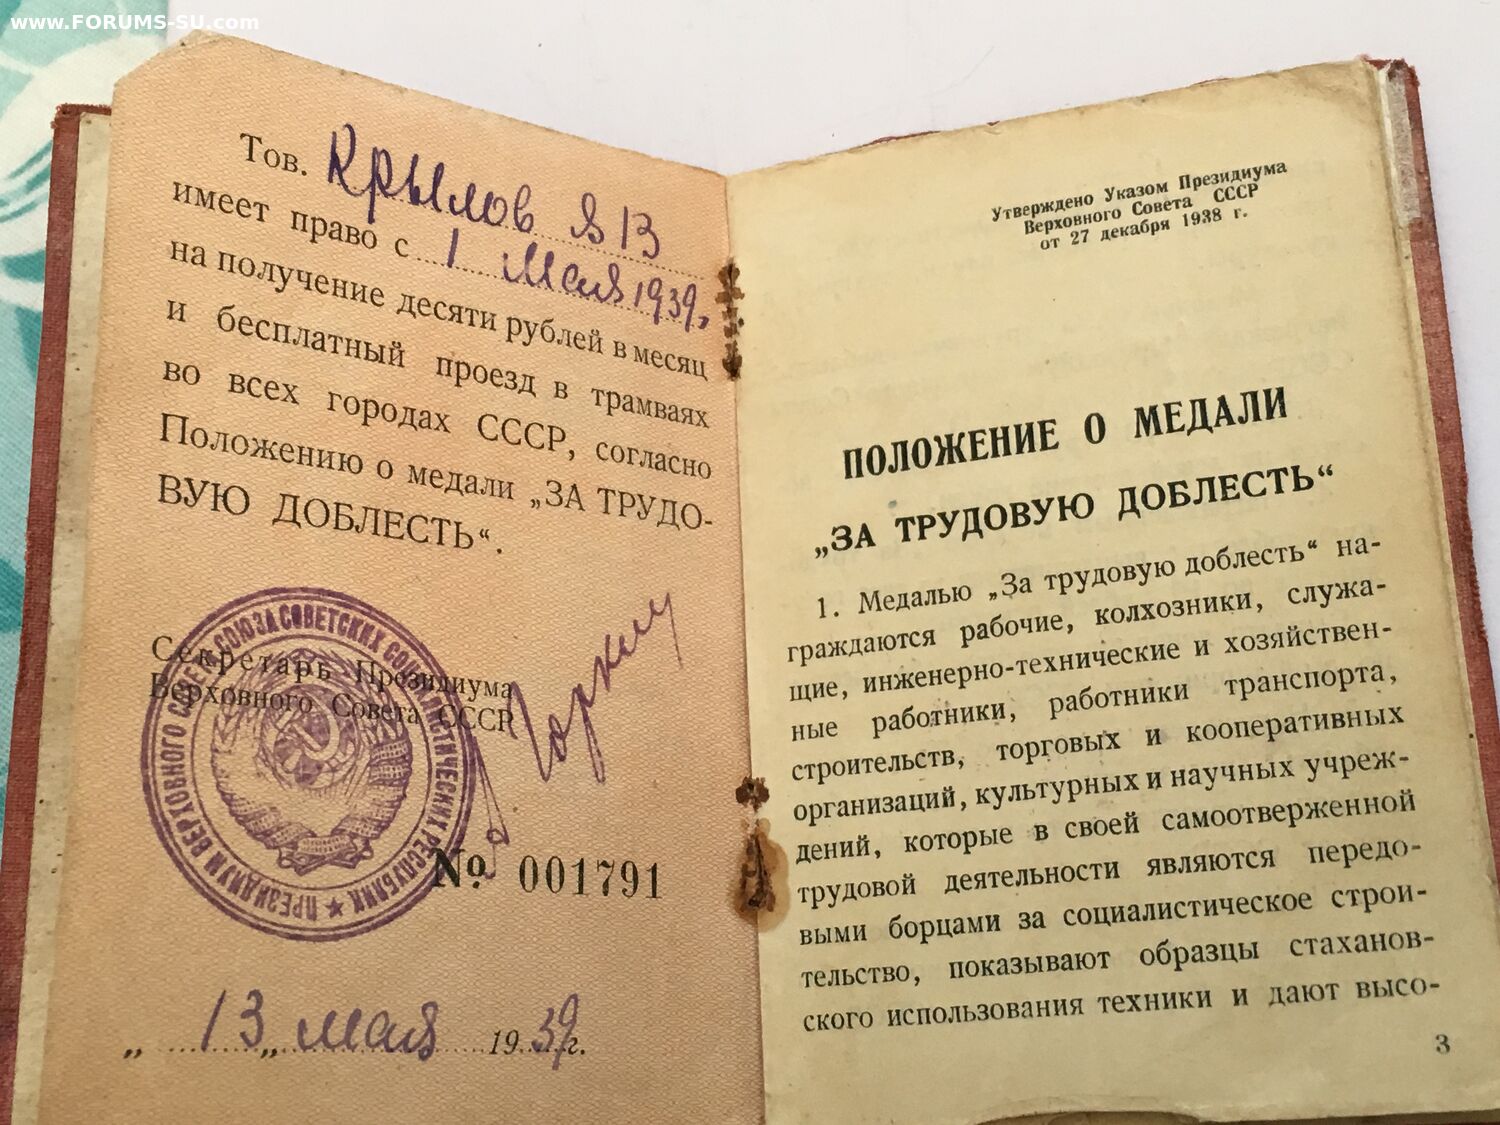 www.FORUMS-SU.com
Тов. Крылов В В
имеет право с 1 мая 1939 г.
на получение десяти рублей в месяц
и бесплатный проезд в трамваях
во всех городах СССР, согласно
Положению о медали „ЗА ТРУДО-
ВУЮ ДОБЛЕСТЬ“.
Секретарь Президиума
Верховного Совета СССР
Горкин
ПРЕЗИДИУМ ВЕРХОВНОГО СОВЕТА СОЮЗА СОВЕТСКИХ СОЦИАЛИСТИЧЕСКИХ РЕСПУБЛИК
№ 001791
„ 13 „ мая 1939 г.
Утверждено Указом Президиума
Верховного Совета СССР
от 27 декабря 1938 г.
ПОЛОЖЕНИЕ О МЕДАЛИ
„ЗА ТРУДОВУЮ ДОБЛЕСТЬ“
1. Медалью „За трудовую доблесть“ на-
граждаются рабочие, колхозники, служа-
щие, инженерно-технические и хозяйствен-
ные работники, работники транспорта,
строительств, торговых и кооперативных
организаций, культурных и научных учреж-
дений, которые в своей самоотверженной
трудовой деятельности являются передо-
выми борцами за социалистическое строи-
тельство, показывают образцы стаханов-
ского использования техники и дают высо-
3